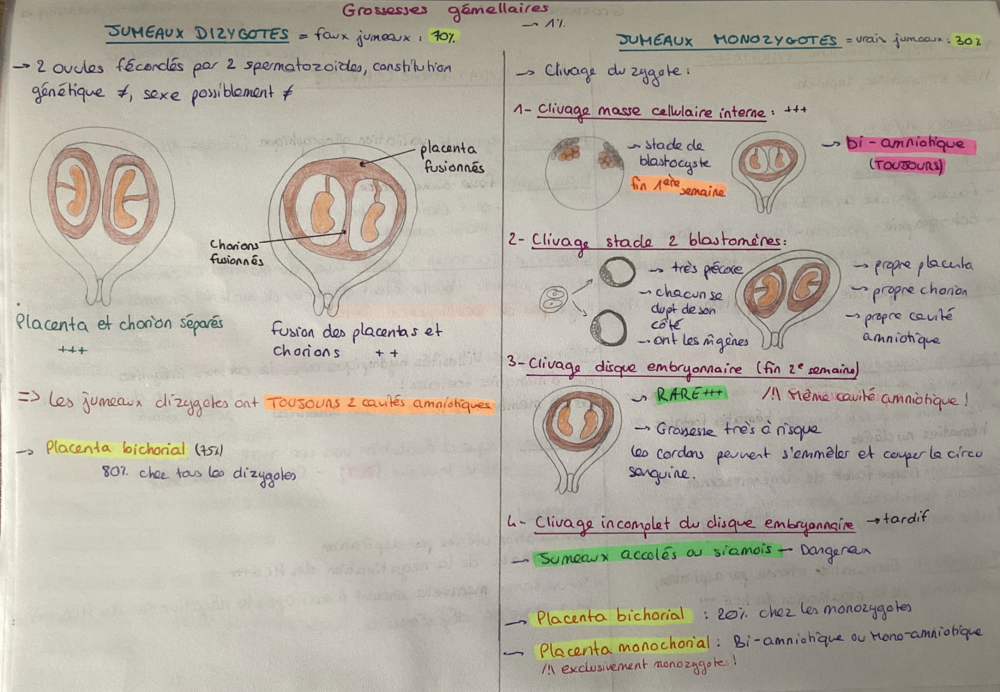 Grossesses gémellaires
→ 1%
JUMEAUX DIZYGOTES = faux jumeaux : 70%
→ 2 ovules fécondés par 2 spermatozoïdes, constitution
génétique ≠, sexe possiblement ≠
placenta
fusionnés
Chorions
fusionnés
Placenta et chorion séparés
+++
Fusion des placentas et
chorions ++
=> Les jumeaux dizygotes ont TOUJOURS 2 cavités amniotiques
→ Placenta bichorial (75%)
80% chez tous les dizygotes
JUMEAUX MONOZYGOTES = vrais jumeaux : 30%
→ Clivage du zygote :
1- Clivage masse cellulaire interne : +++
→ stade de
blastocyste
fin 1ère
semaine
→ bi-amniotique
(TOUJOURS)
2- Clivage stade 2 blastomères :
→ très précoce
→ chacun se
dvpt de son
côté
→ ont les m̂ gènes
→ propre placenta
→ propre chorion
→ propre cavité
amniotique
3- Clivage disque embryonnaire (fin 2e semaine)
→ RARE +++ /!\ Même cavité amniotique !
→ Grossesse très à risque
Les cordons peuvent s'emmêler et couper la circu
sanguine.
4- Clivage incomplet du disque embryonnaire → tardif
→ Jumeaux accolés ou siamois → Dangereux
→ Placenta bichorial : 20% chez les monozygotes
→ Placenta monochorial : Bi-amniotique ou Mono-amniotique
/!\ exclusivement monozygote !